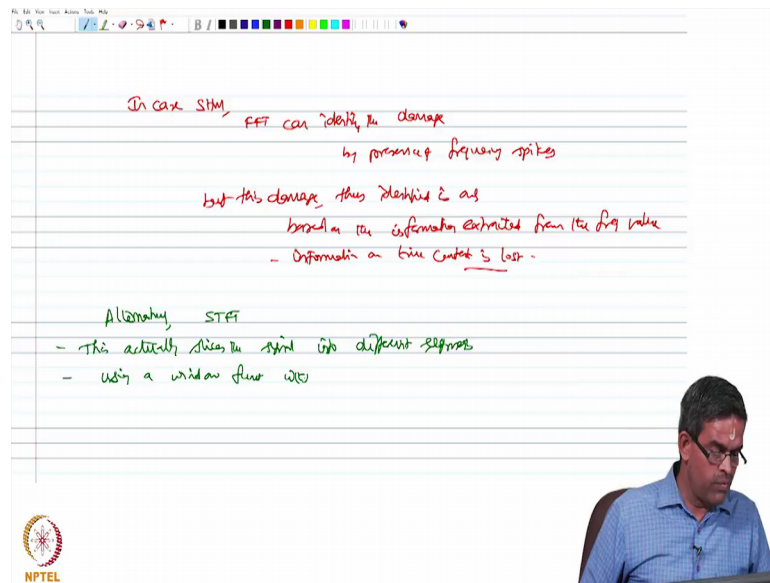 File Edit View Insert Actions Tools Help
In case SHM,
FFT can identify the damage
by presence of frequency spikes
but this damage, thus identified is only
based on the information extracted from the freq value
- Information on time content is lost -
Alternatively, STFT
- This actually slices the signal into different segments
- using a window funct
NPTEL